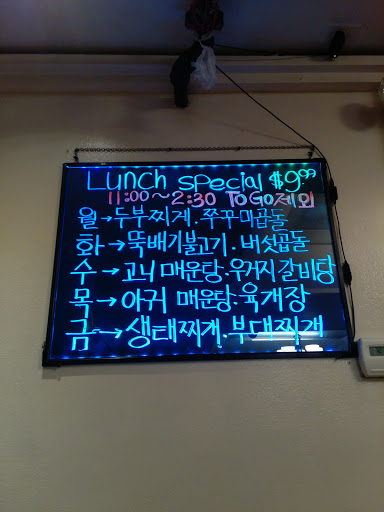 Lunch special $9.99
11:00~2:30 TO GO 제외
월→두부찌게.쭈꾸미곱돌
화→뚝배기불고기.버섯곱돌
수→고니 매운탕.우거지갈비탕
목→아귀 매운탕.육개장
금→생태찌개.부대찌개